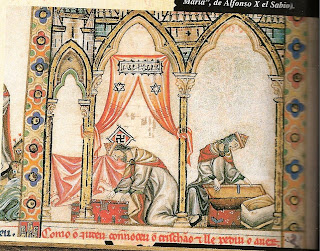 María", de Alfonso X el Sabio).
Como o
connoceu o crischão τ lle pediu o auer